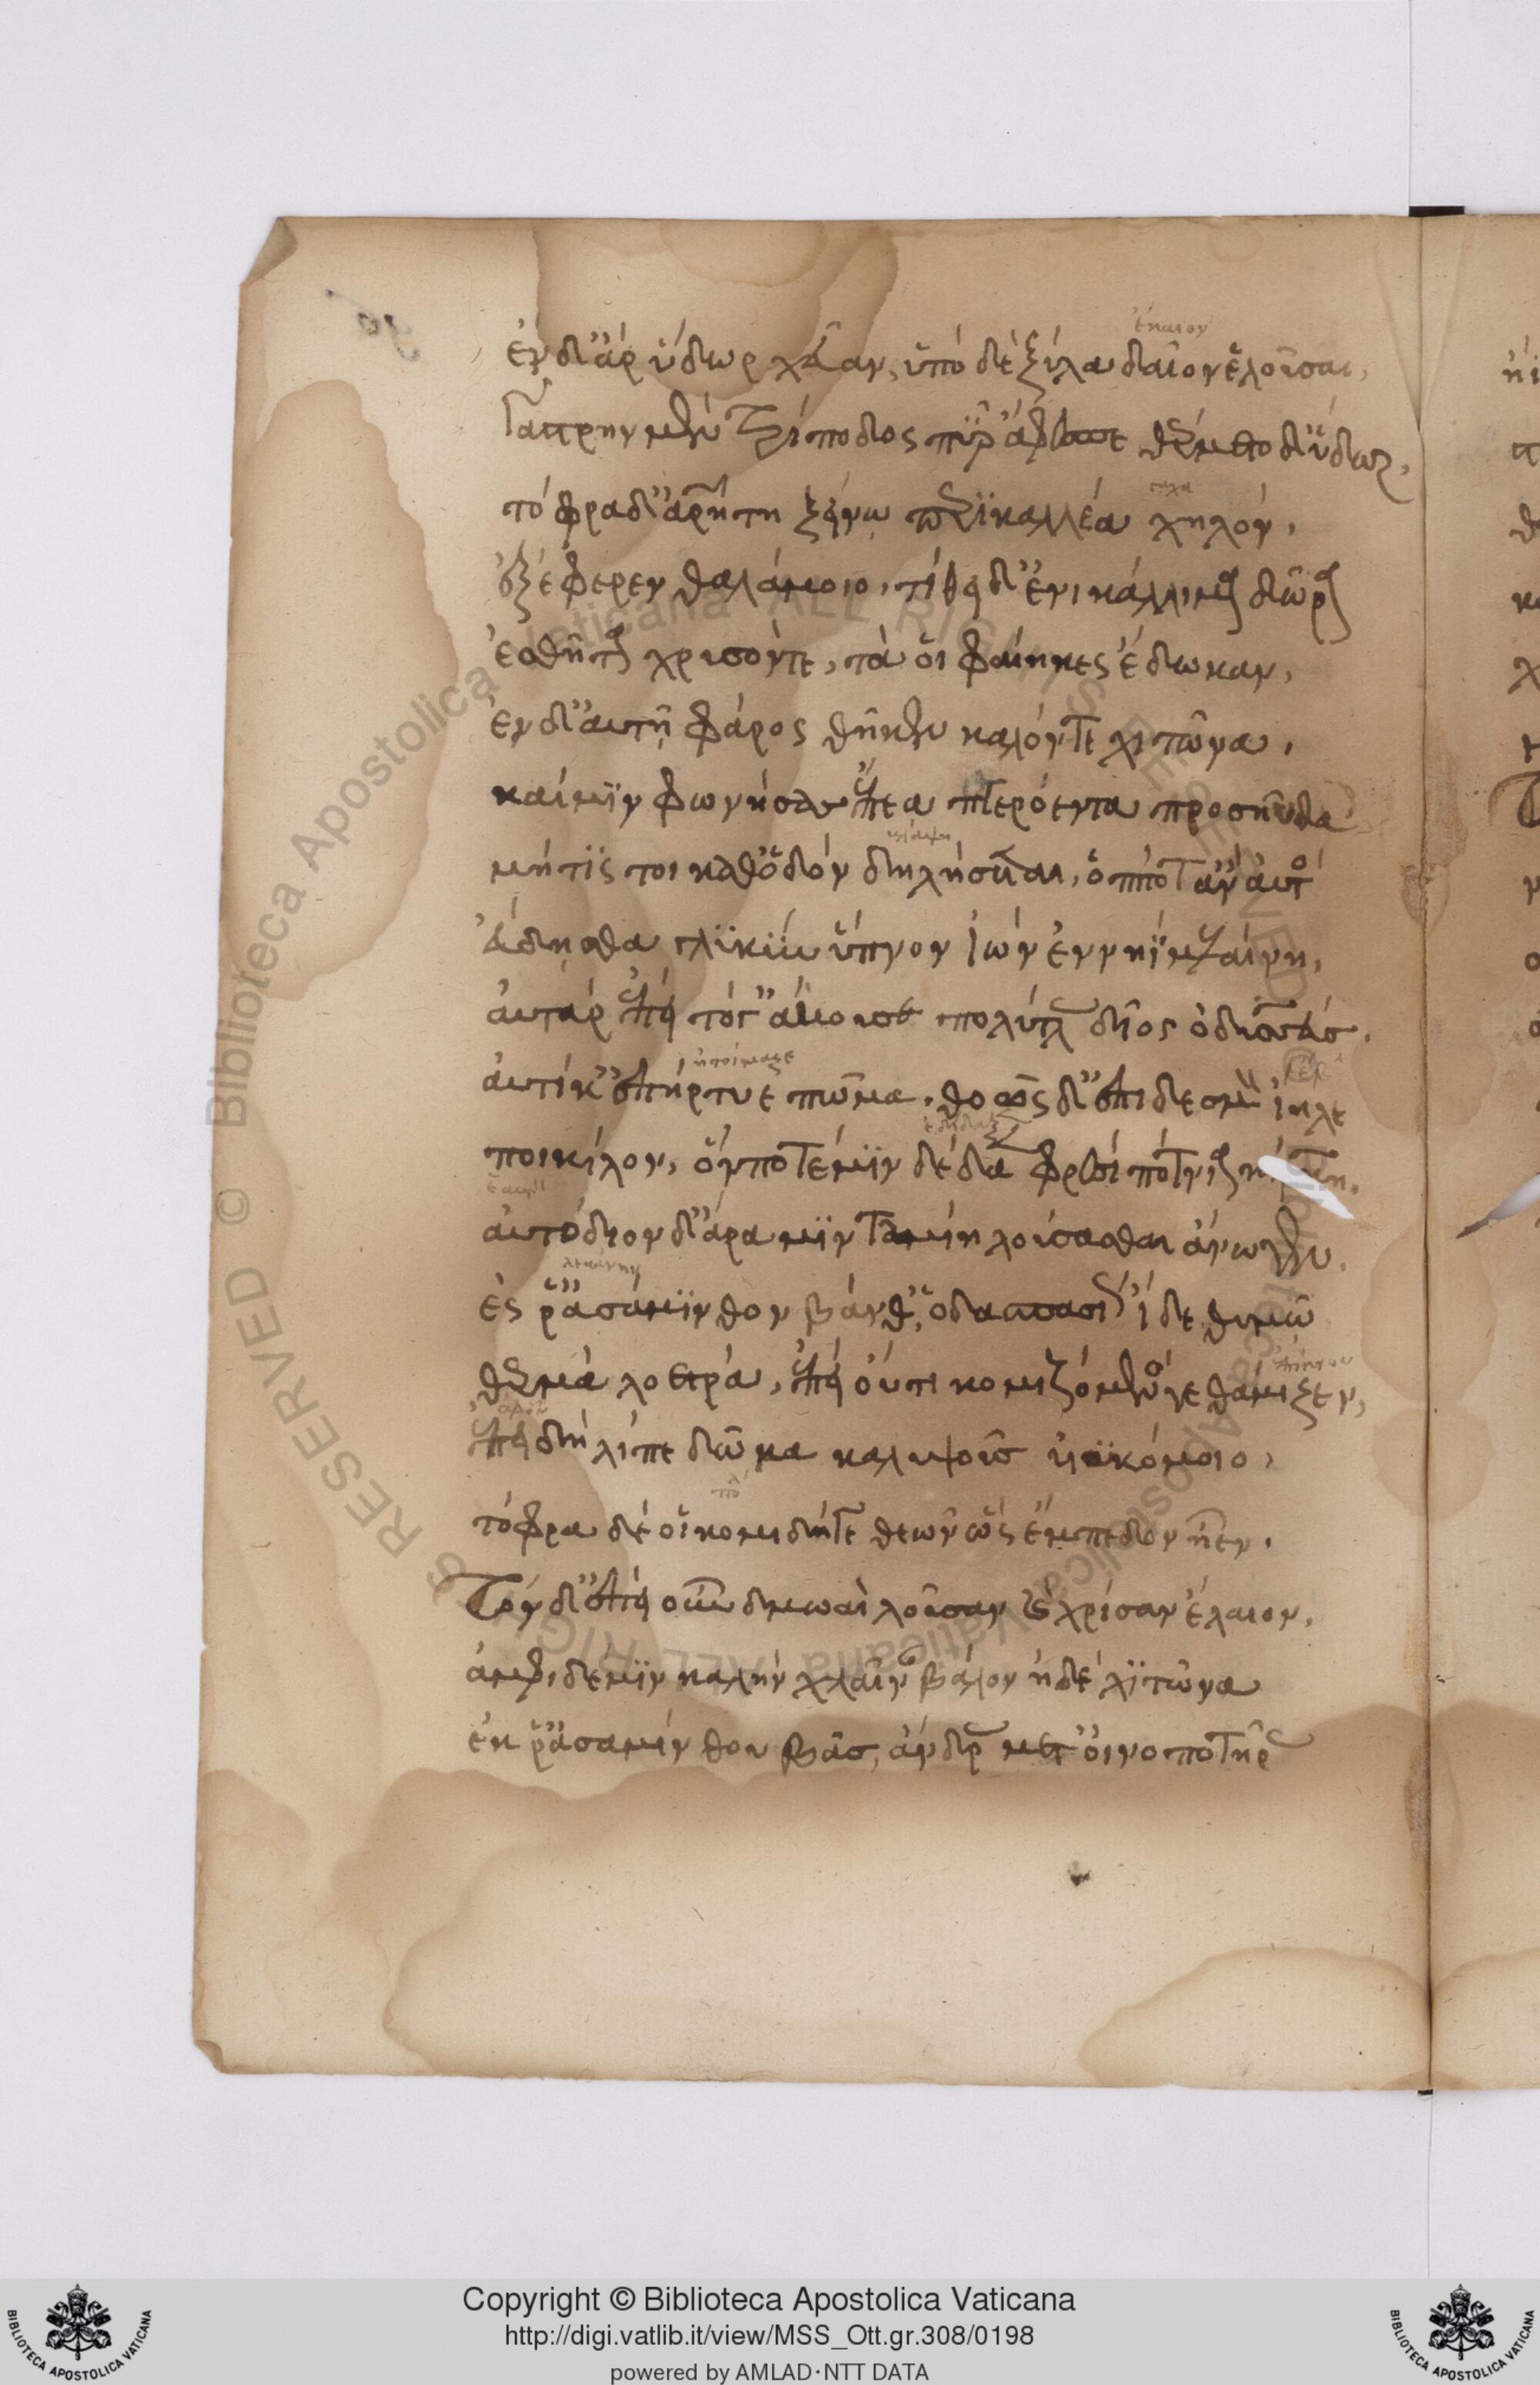 ἔναιον
ἐν δ' ἄρ ὕδωρ χέαν, ὑπὸ δὲ ξύλα δαῖον ἑλοῦσαι,
γάστρην μὲν τρίποδος πῦρ ἄμφεπε θέρμετο δ' ὕδωρ,
τόφρα δ' ἀρήτη ξείνω περικαλλέα χηλόν,
ἐξέφερεν θαλάμοιο, τίθει δ' ἐνι κάλλιμα δῶρα
ἐσθῆτα χρυσόν τε, τά οἱ φαίηκες ἔδωκαν,
ἐν δ' αὐτῇ φάρος θῆκεν καλόν τε χιτῶνα,
καί μιν φωνήσασ' ἔπεα πτερόεντα προσηύδα
μή τίς τοι καθ' ὁδὸν δηλήσεται, ὁππότ' ἂν αὖτε
εὕδησθα γλυκὺν ὕπνον ἰὼν ἐν νηῒ μελαίνη,
αὐτὰρ ἐπεὶ τό γ' ἄκουσε πολύτλας δῖος ὀδυσσεύς,
ἡτοίμαζε
αὐτίκ' ἐπήρτυε πῶμα, θοῶς δ' ἐπὶ δεσμὸν ἴηλε
ποικίλον, ὅν ποτέ μιν δέδαε φρεσὶ πότνια κίρκη.
αὐτόδιον δ' ἄρα μιν ταμίη λούσασθαι ἀνώγεν
ἐς ῥ' ἀσάμινθον βάνθ', ὁ δ' ἀσπασίως ἴδε θυμῷ
θερμὰ λοετρά, ἐπεὶ οὔτι κομιζόμενός γε θάμιζεν,
ἐπειδὴ λίπε δῶμα καλυψοῦς ἠϋκόμοιο,
τόφρα δέ οἱ κομιδή τε θεῷ ὣς ἔμπεδον ἦεν.
Τὸν δ' ἐπεὶ οὖν δμωαὶ λοῦσαν καὶ χρίσαν ἔλαιον,
ἀμφι δέ μιν καλὴν χλαῖναν βάλον ἠδὲ χιτῶνα
ἐκ ῥ' ἀσαμίνθου βὰς, ἄνδρας μετ' οἰνοποτῆρας
Copyright © Biblioteca Apostolica Vaticana
http://digi.vatlib.it/view/MSS_Ott.gr.308/0198
powered by AMLAD·NTT DATA